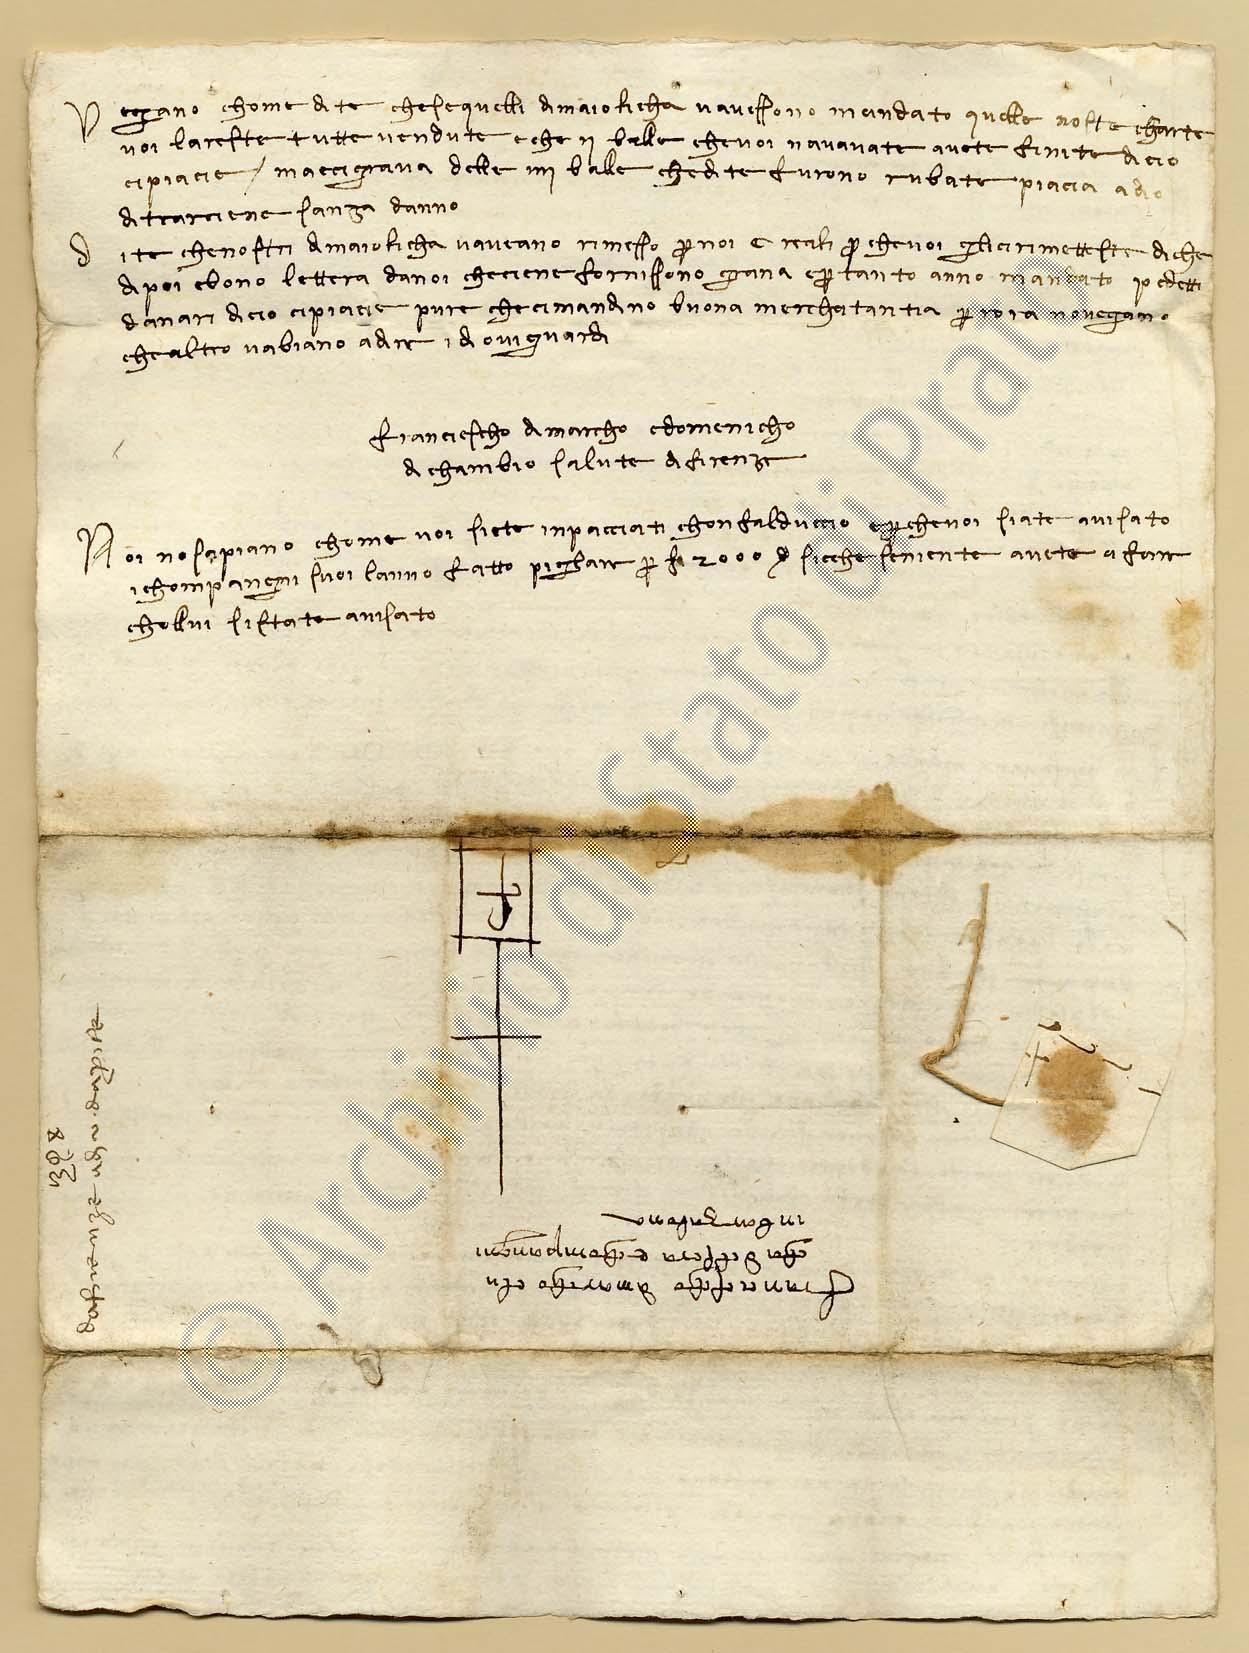 Veggano chome dite che se quelli di maiolicha v'avessono mandato quelle nostre charte
voi l'areste tutte vendute e che ii balle che voi n'avavate avete finite di cio
ci piacie / ma ecci grava delle iiii balle che dite furono rubate piacia a dio
di trarciene sanza danno
Dite che nostri di maiolicha v'aveano rimesso per noi C reali perche voi gli ci rimetteste di che
di poi ebono lettera da noi che ciene fornissono grana e per tanto anno mandato per detti
danari di cio ci piacie pure che ci mandino buona merchatantia per ora no vegano
che altro v'abiano a dire idio vi guardi
Franciescho di marcho e domenicho
di chambio salute di firenze
Noi no sapiano chome voi siete inpacciati chon falduccio e perche voi siate avisato
i chompangni suoi l'anno fatto pigliare per f 2000 sicche se niente avete a fare
chollui si state avisato
Franciescho di marcho e lu
cha del sera e chompangni
in barzalona